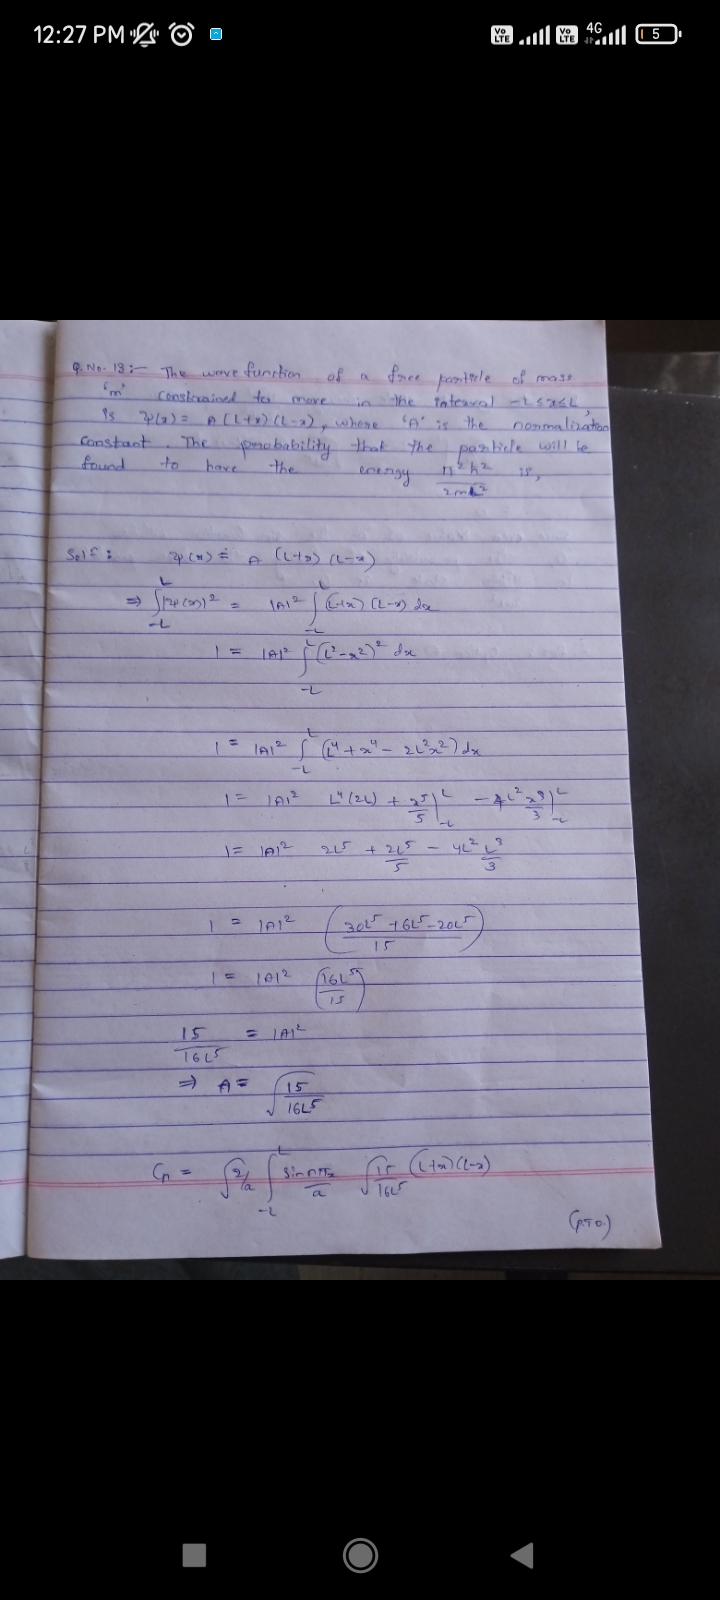 12:27 PM
Vo LTE Vo LTE 4G 5
Q.No. 13:- The wave function of a free particle of mass
'm' constrained to move in the interval -L ≤ x ≤ L,
is ψ(x) = A (L+x) (L-x), where 'A' is the normalization
constant. The probability that the particle will be
found to have the energy π²ħ²/2mL² is,
Solⁿ: ψ(x) = A (L+x) (L-x)
⇒ ∫_{-L}^{L} |ψ(x)|² = |A|² ∫_{-L}^{L} (L+x) (L-x) dx
1 = |A|² ∫_{-L}^{L} (L²-x²)² dx
1 = |A|² ∫_{-L}^{L} (L⁴ + x⁴ - 2L²x²) dx
1 = |A|² L⁴(2L) + x⁵/5 |_{-L}^{L} - L² x³/3 |_{-L}^{L}
1 = |A|² 2L⁵ + 2L⁵/5 - 4L² L³/3
1 = |A|² (30L⁵ + 6L⁵ - 20L⁵ / 15)
1 = |A|² (16L⁵/15)
15/16L⁵ = |A|²
⇒ A = √(15/16L⁵)
Cn = √(2/a) ∫_{-L}^{L} sin nπx/a √(15/16L⁵) (L+x)(L-x)
(P.T.O.)